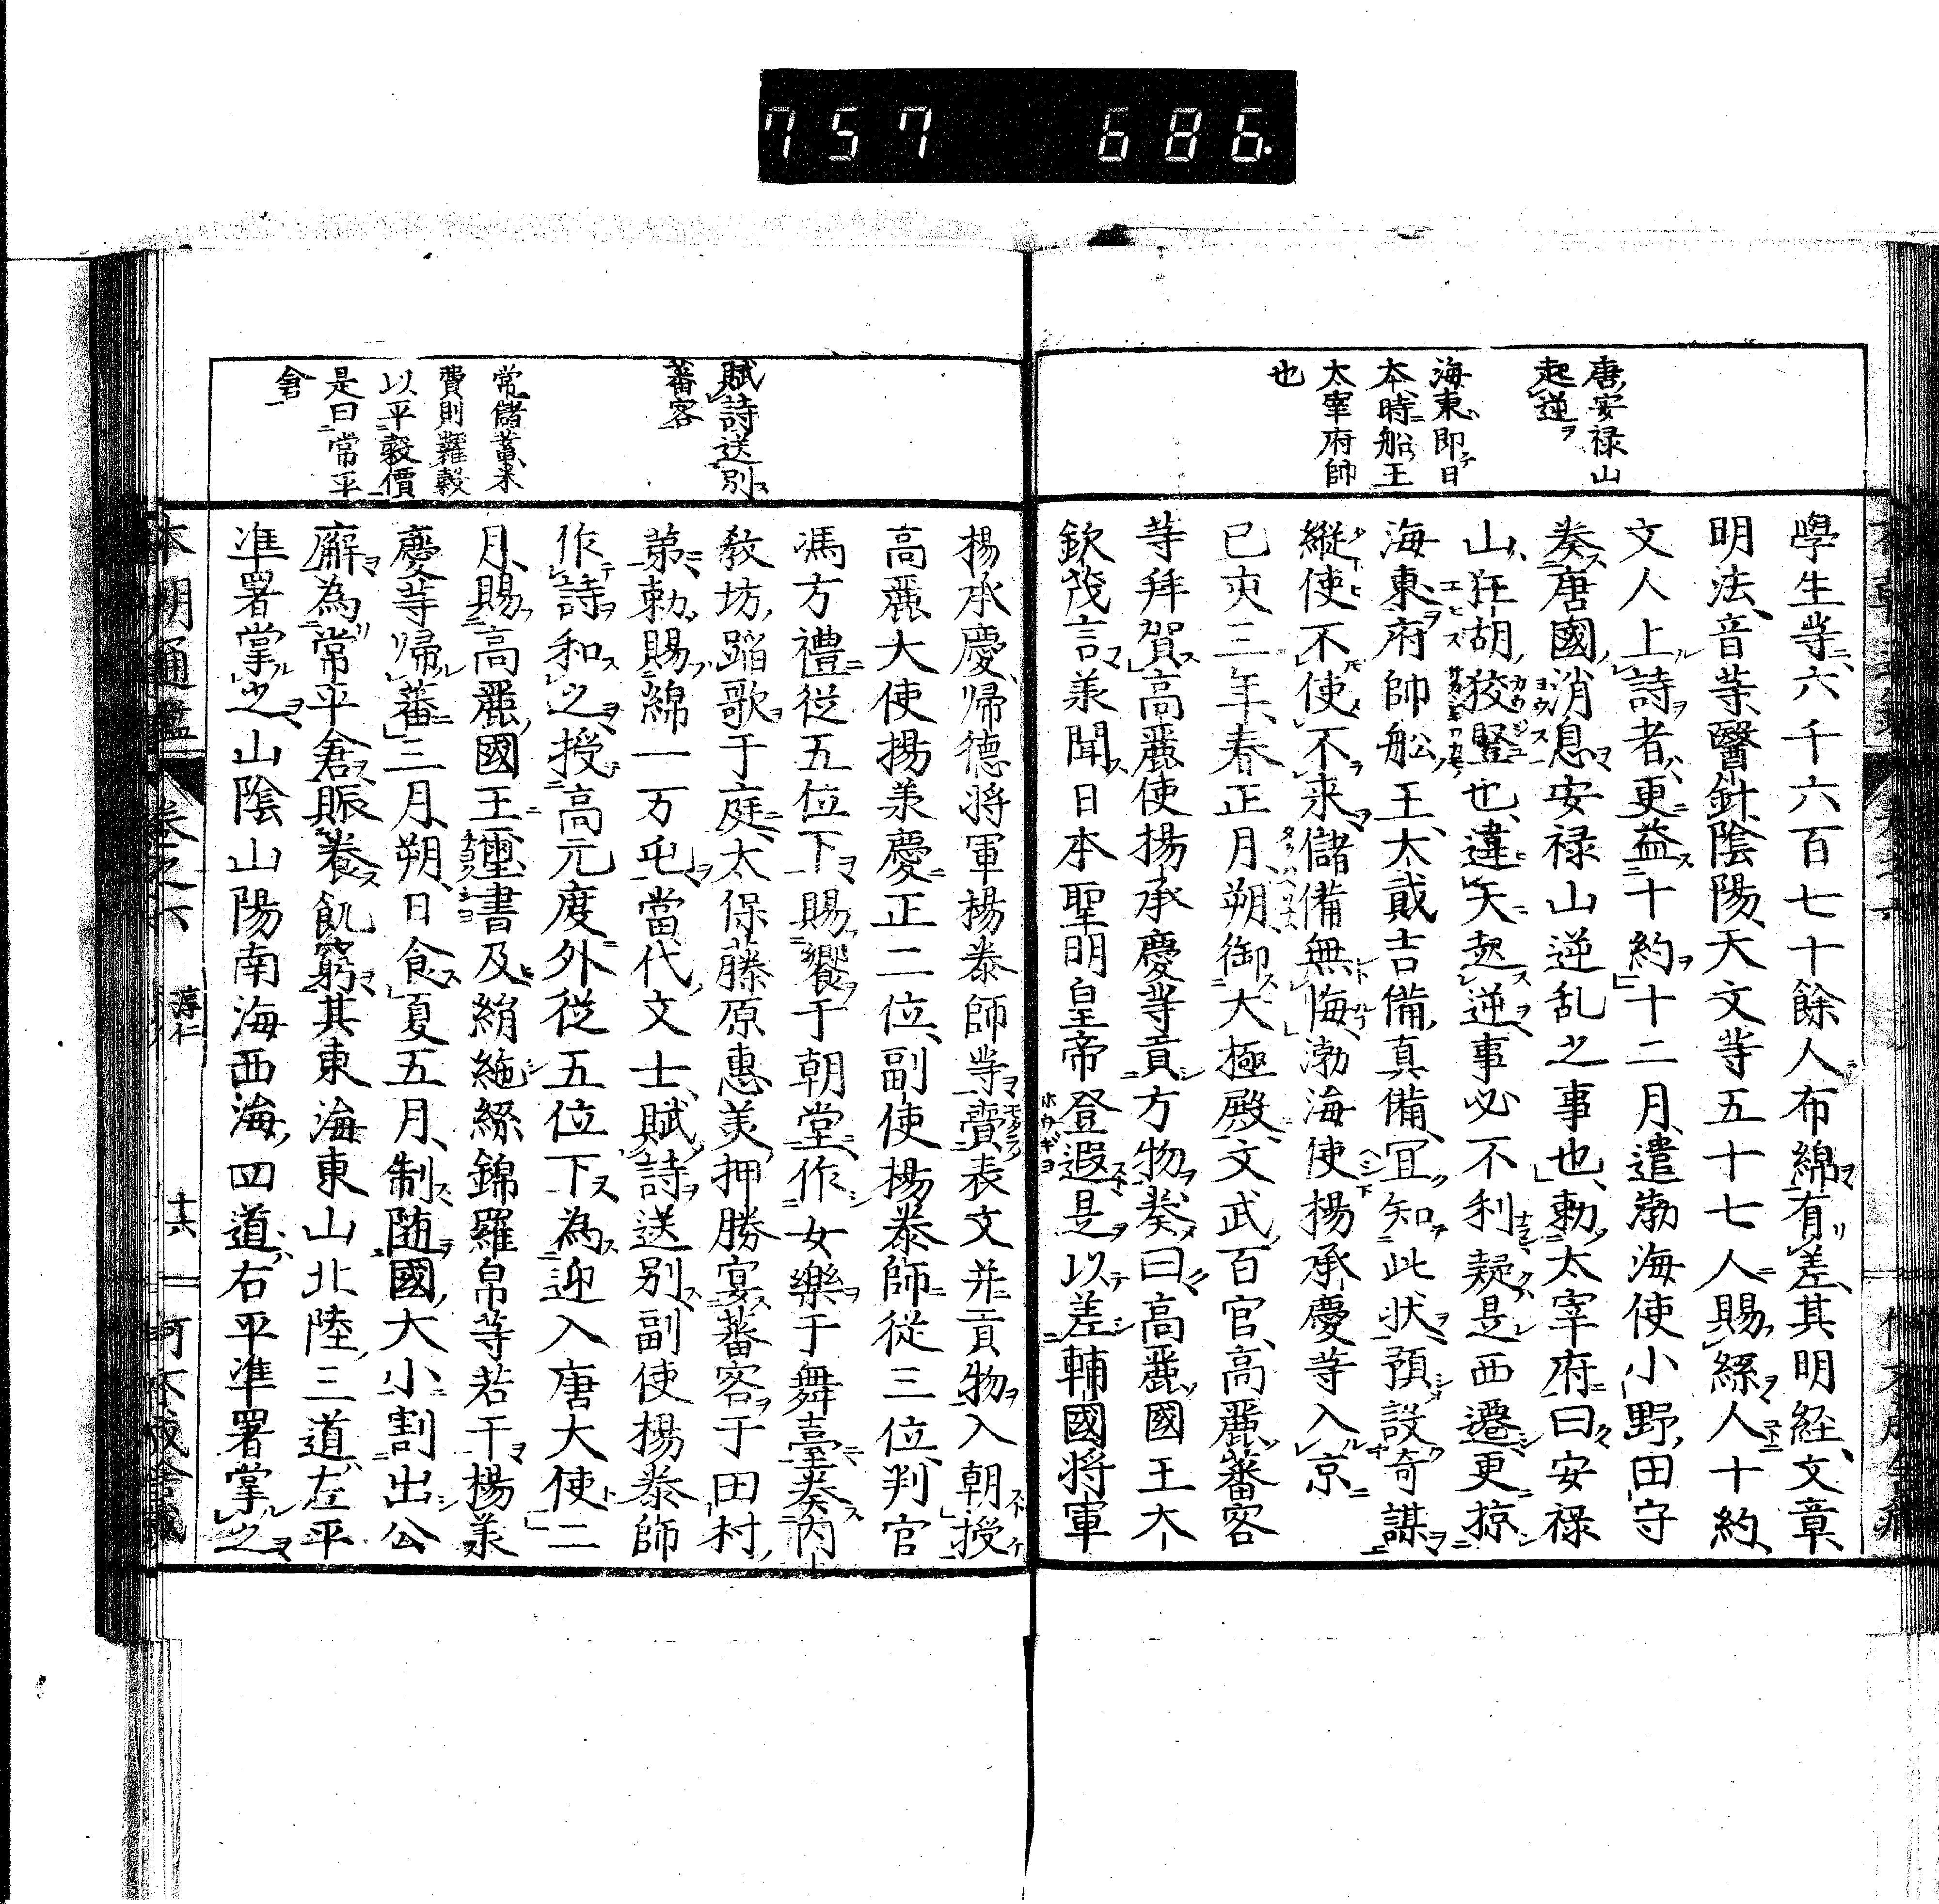 757 686.
唐安禄山
起逆
海東即日
本時船王
太宰府帥
也
學生等六千六百七十餘人布綿有差其明経文章
明法音等醫針陰陽天文等五十七人賜絲人十約
文人上詩者更益十約十二月遣渤海使小野田守
奏唐國消息安禄山逆乱之事也勅太宰府曰安禄
山狂胡狡竪也違天起逆事必不利疑是西遷更掠
海東府帥舩王大貳吉備真備冝知此状預設奇謀
縱使不使不来儲備無悔渤海使揚承慶等入京
已亥三年春正月朔御大極殿文武百官高麗蕃客
等拜賀高麗使揚承慶等貢方物奏曰高麗國王大
欽茂言羕聞日本聖明皇帝登遐是以差輔國将軍
賦詩送別
蕃客
常儲蓄米
費則糶穀
以平穀價
是曰常平
倉
揚承慶帰德将軍揚泰師等賷表文并貢物入朝授
高麗大使揚羕慶正二位副使揚泰師従三位判官
馮方禮従五位下賜饗于朝堂作女樂于舞臺奏内
教坊蹈歌于庭太保藤原惠美押勝宴蕃客于田村
苐勅賜綿一万屯當代文士賦詩送別副使揚泰師
作詩和之授高元度外従五位下為迎入唐大使二
月賜高麗國王璽書及絹絁綵錦羅帛等若干揚羕
慶等帰蕃三月朔日食夏五月制随國大小割出公
廨為常平倉賑養飢窮其東海東山北陸三道左平
凖署掌之山陰山陽南海西海四道右平凖署掌之
本朝通鑑 卷之六 淳仁 十六